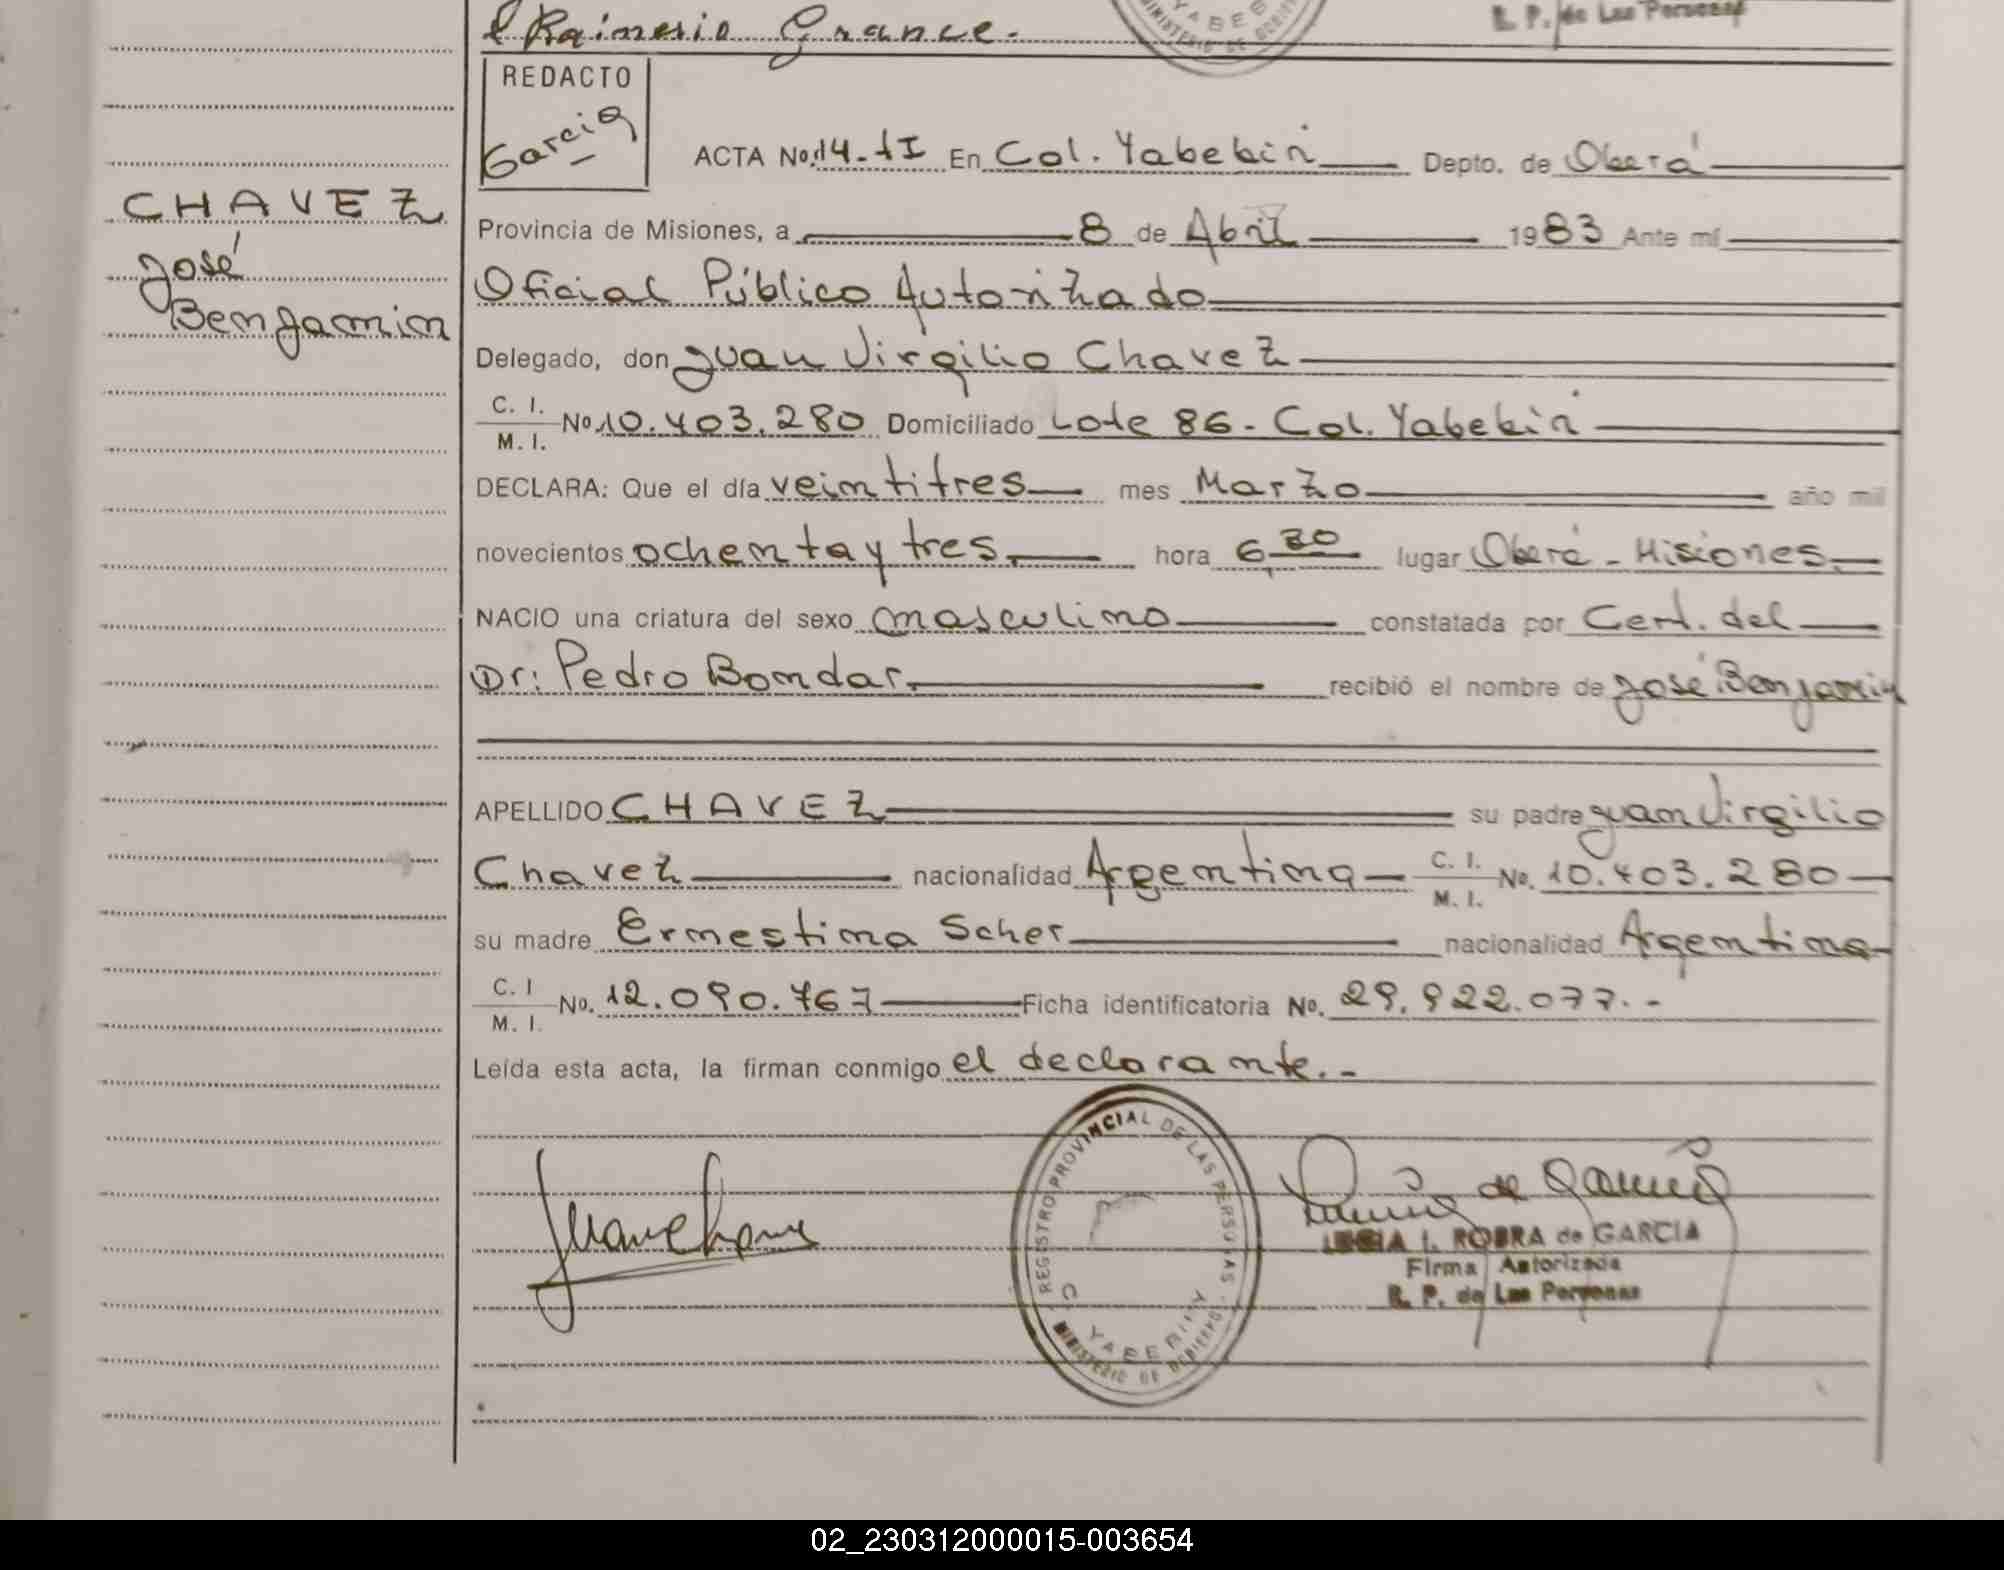 Raimerio Grance.-
YABEB
MINISTERIO DE
R. P. de Las Personas
REDACTO
Garcia
ACTA No. 14-tI En Col. Yabebirí Depto. de Oberá
CHAVEZ
José
Benjamin
Provincia de Misiones, a 8 de Abril 1983 Ante mí
Oficial Público Autorizado
Delegado, don Juan Virgilio Chavez
C. I.
M. I.
No 10.403.280 Domiciliado Lote 86- Col. Yabebirí
DECLARA: Que el día veintitres mes Marzo año mil
novecientos ochenta y tres hora 6,30 lugar Oberá - Misiones
NACIO una criatura del sexo masculino constatada por Cert. del
Dr: Pedro Bondar recibió el nombre de José Benjamin
APELLIDO CHAVEZ su padre Juan Virgilio
Chavez nacionalidad Argentina C. I. M. I. No. 10.403.280
su madre Ernestina Scher nacionalidad Argentina
C. I M. I. No. 12.090.767 Ficha identificatoria No. 29.922.077.-
Leída esta acta, la firman conmigo el declarante.-
REGISTRO PROVINCIAL DE LAS PERSONAS
C. YABEBIRY
MINISTERIO DE GOBIERNO
de Garcia
LUCIA I. ROBRA de GARCIA
Firma Autorizada
R. P. de Las Personas
02_230312000015-003654